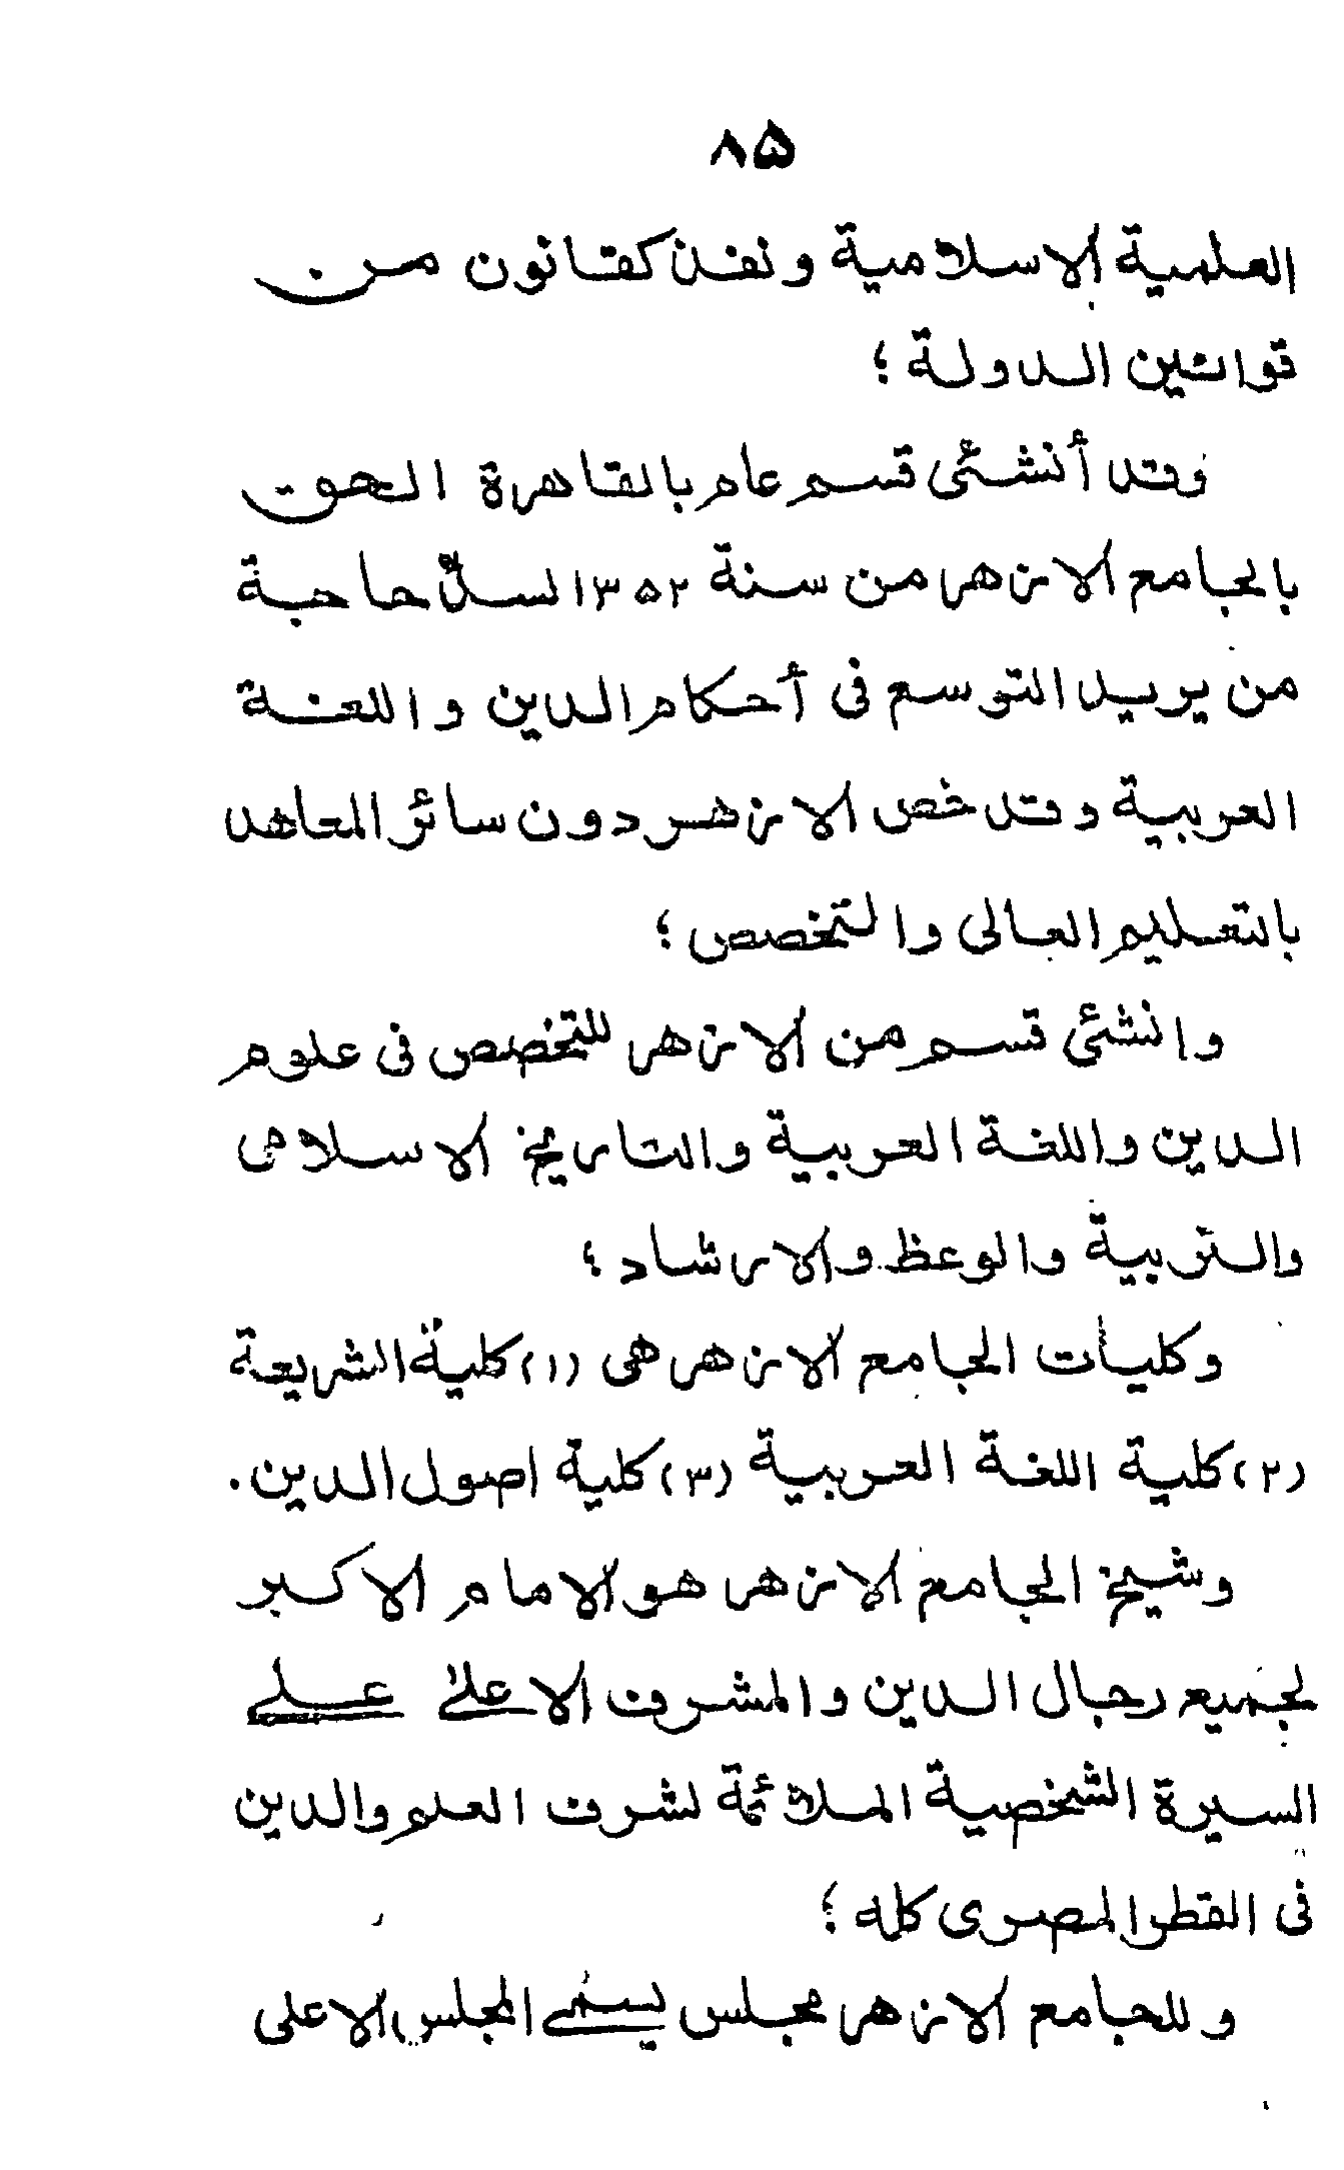 ٨۵
العلمية الاسلامية ونفذ كقانون من
قوانين الدولة ؛
وقد أنشئى قسم عام بالقاهرة الحق
بالجامع الازهر من سنة ١٣۵٢ لسدّ حاجة
من يريد التوسع فى أحكام الدين واللغة
العربية وقد خص الازهر دون سائر المعاهد
بالتعليم العالى والتخصص ؛
وانشئى قسم من الازهر للتخصص فى علوم
الدين واللغة العربية والتاريخ الاسلامى
والتربية والوعظ والارشاد ؛
وكليات الجامع الازهر هى (١) كلية الشريعة
(٢) كلية اللغة العربية (٣) كلية اصول الدين .
وشيخ الجامع الازهر هو الامام الاكبر
لجميع رجال الدين والمشرف الاعلىٰ على
السيرة الشخصية الملائمة لشرف العلم والدين
فى القطر المصرى كله ؛
وللجامع الازهر مجلس يسمى المجلس الاعلى